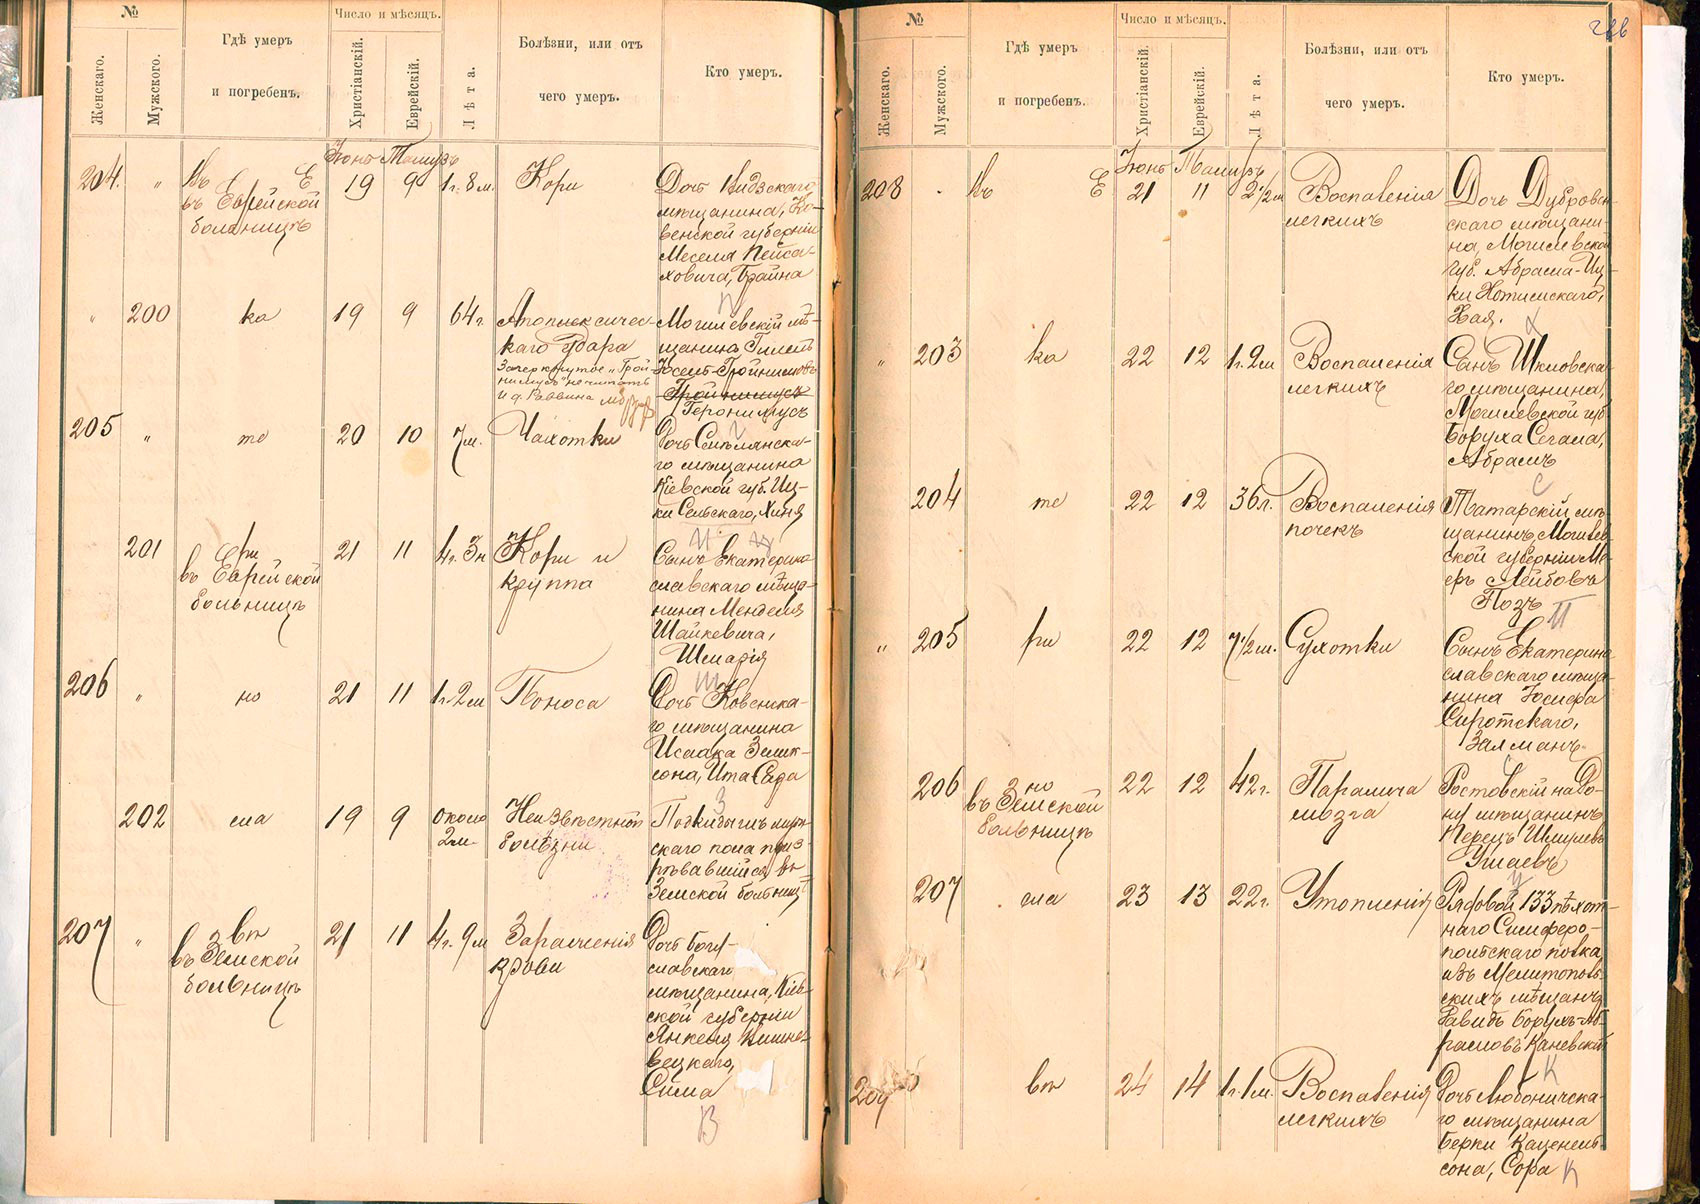 №
Число и мѣсяцъ.
Женскаго.
Мужского.
Гдѣ умеръ
и погребенъ.
Христіанскій.
Еврейскій.
Лѣта.
Болѣзни, или отъ
чего умеръ.
Кто умеръ.
Іюнь Тамузъ
204. " Въ Е 19 9 1 г. 8 м. Кори
въ Еврейской
больницѣ
Дочь Видзскаго
мѣщанина, Ко-
венской губерніи
Пейса-
ховича, Брайна
" 200 ка 19 9 64 г.
Апоплексичес-
каго удара
Зачеркнутое „Грой-
нимусъ" не читать
И. д. Раввина
Могилевскій мѣ-
щанинъ Гилель
Іосель-Гройнимовъ
Гройнимусъ
Геронимусъ
205 " те 20 10 7 м. Чахотки
Дочь
го мѣщанина
Кіевской губ. Иц-
ки Сельскаго, Хиня
201 ри 21 11 4 г. 3 м
въ Еврейской
больницѣ
Кори и
круппа
Сынъ Екатерино
славскаго мѣща-
нина Менделя
Шайкевича,
Шмарія
206 " но 21 11 1 г. 2 м Поноса
Дочь Ковенска-
го мѣщанина
Исаака Земк-
сона, Ита Сяда
202 сла 19 9 около
2 м.
Неизвѣстной
болѣзни
Подкидышъ муж-
скаго пола приз-
рѣвавшійся въ
Земской больницѣ
207 " вя 21 11 4 г. 9 м
въ Земской
больницѣ
Зараженія
крови
Дочь Богу-
славскаго
мѣщанина, Кіев-
ской губерніи
Янкеля Вишне-
вецкаго,
Сима
В
№
Число и мѣсяцъ.
Женскаго.
Мужского.
Гдѣ умеръ
и погребенъ.
Христіанскій.
Еврейскій.
Лѣта.
Болѣзни, или отъ
чего умеръ.
Кто умеръ.
Іюнь Тамузъ
208 Въ Е 21 11 2 1/2 м
Воспаленія
легкихъ
Дочь Дубровен
скаго мѣщани-
на, Могилевской
губ. Абрама-Иц-
ки Хотимскаго,
Хая.
Х
" 203 ка 22 12 1 г. 2 м
Воспаленія
легкихъ
Сынъ Шкловска-
го мѣщанина,
Могилевской губ
Боруха Сегала,
Абрамъ
С
204 те 22 12 36 л.
Воспаленія
почекъ
Татарскій мѣ-
щанинъ, Могилев-
ской губерніи Ме-
еръ Лейбовъ
Позъ
П
" 205 ри 22 12 7 1/2 м. Сухотки
Сынъ Екатерино
славскаго мѣща-
нина Іосифа
Сиротскаго,
Залманъ.
С
206 но 22 12 42 г.
въ Земской
больницѣ
Паралича
мозга
Ростовскій на До-
ну мѣщанинъ
Перецъ Шмулевъ
Ушаевъ
У
207 сла 23 13 22 г. Утопленія
Рядовой 133 пѣхот-
наго Симферо-
польскаго полка,
изъ Мелитополь-
скихъ мѣщанъ
Давидъ Борухъ-Аб-
рамовъ Каневскій
К
209 вя 24 14 1 г. 1 м.
Воспаленія
легкихъ
Дочь Любоничска-
го мѣщанина
Берки Каценель-
сона, Сора К